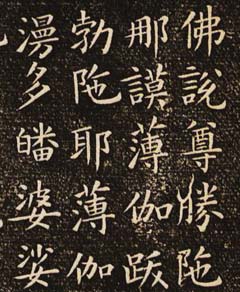 佛說尊勝陁
那謨薄伽跋
勃陁耶薄伽
漫多皤婆娑